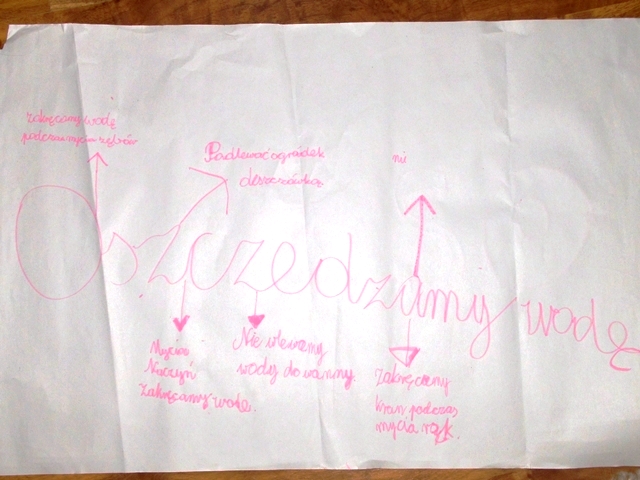 zakręcamy wodę
podczas mycia zębów
Podlewać ogródek
deszczówką
ni
Oszczędzamy wodę
Mycia
Naczyń
zakręcamy wodę.
Nie wlewamy
wody do wanny.
zakręcamy
kran podczas
mycia rąk.